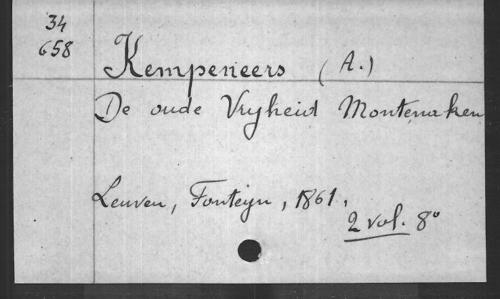 34
658
Kempeneers (A.)
De oude Vryheid Montenaken
Leuven, Fonteyn, 1861.,
2 vol. 8°